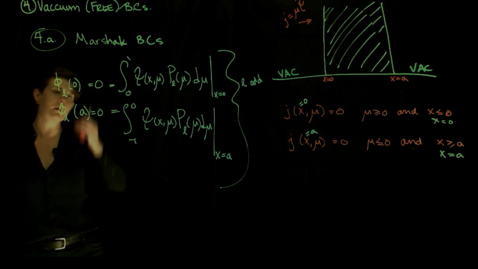 ④ Vaccuum (FREE) BCs.
4.a. Marshak BCs
(0) = 0 = ∫₀¹ Ψ(x,μ) Pℓ(μ) dμ |ₓ₌₀
(a) = 0 = ∫₋₁⁰ Ψ(x,μ) Pℓ(μ) dμ |ₓ₌ₐ
ℓ odd
j = μΨ
VAC
VAC
x=0
x=a
j(x,μ) = 0 μ≥0 and x≤0
x=0
x=0
j(x,μ) = 0 μ≤0 and x≥a
x=a
x=a